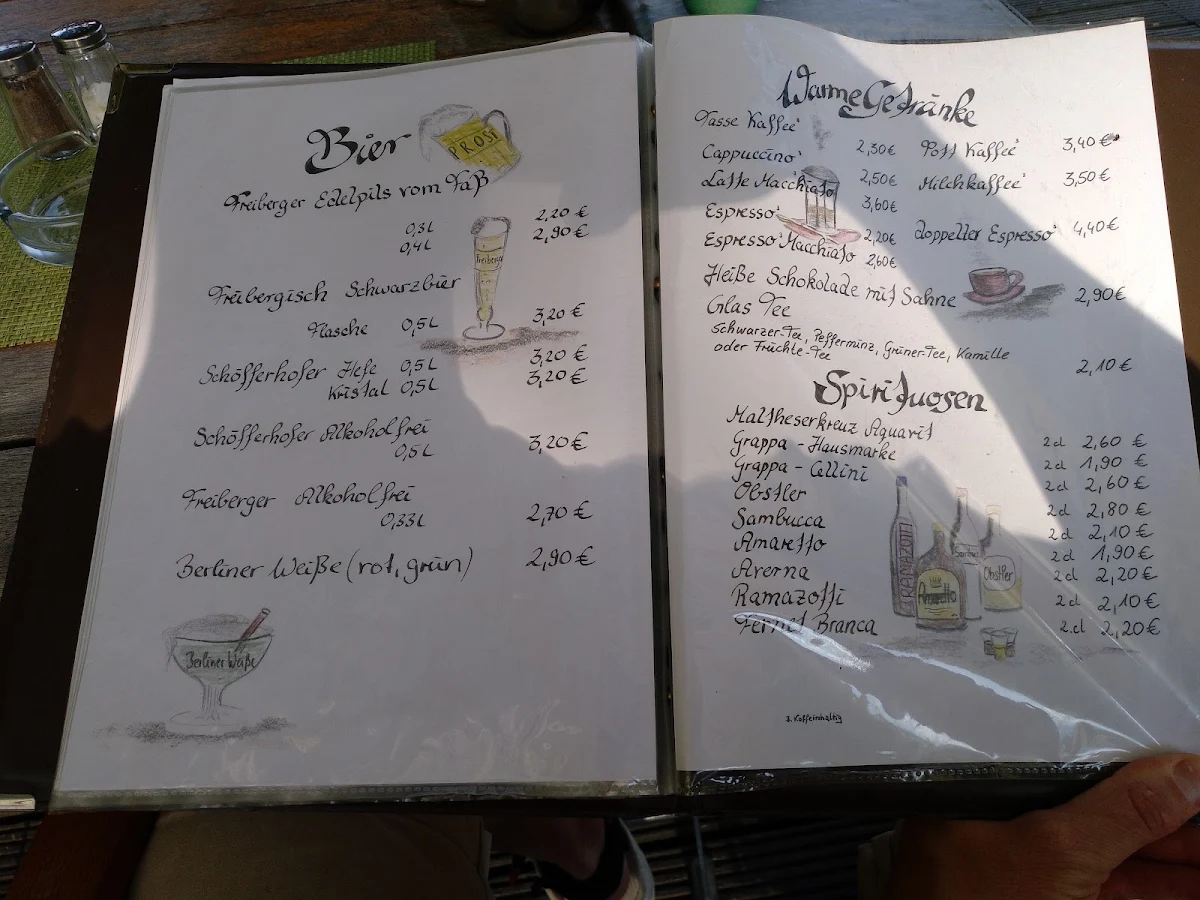 Bier
PROST
Freiberger Edelpils vom Faß
0,3L 2,20 €
0,4L 2,90 €
Freiberger
Freibergisch Schwarzbier
Flasche 0,5L 3,20 €
Schöfferhofer Hefe 0,5L 3,20 €
Kristal 0,5L 3,20 €
Schöfferhofer Alkoholfrei
0,5L 3,20 €
Freiberger Alkoholfrei
0,33L 2,70 €
Berliner Weiße (rot, grün) 2,90 €
Berliner Weiße
Warme Getränke
Tasse Kaffee³ 2,30€ Pott Kaffee³ 3,40 €
Cappuccino³ 2,50€ Milchkaffee³ 3,50 €
Latte Macchiato 3,60€
Espresso³ 2,20€ doppelter Espresso³ 4,40€
Espresso³ Macchiato 2,60€
Heiße Schokolade mit Sahne 2,90€
Glas Tee
Schwarzer-Tee, Pefferminz, Grüner-Tee, Kamille
oder Früchte-Tee 2,10 €
Spirituosen
Maltheserkreuz Aquavit 2cl 2,60 €
Grappa - Hausmarke 2cl 1,90 €
Grappa - Cellini 2cl 2,60 €
Obstler 2cl 2,80 €
Sambucca 2cl 2,10 €
Amaretto 2cl 1,90 €
Averna 2cl 2,20 €
Ramazotti 2cl 2,10 €
Fernet Branca 2.cl 2,20 €
RAMAZOTTI
Amaretto
Obstler
3. Koffeinhaltig